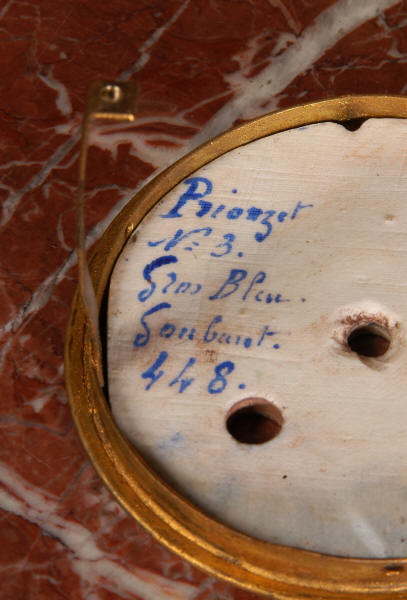 Prionzet
Nº 3.
Gros Bleu.
Goubaut.
448.